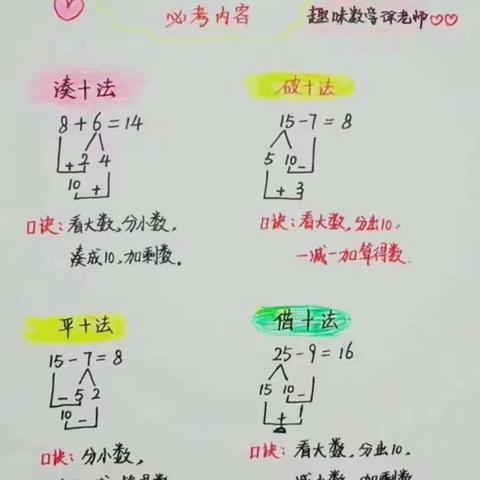 必考内容
趣味数学徐老师
凑十法
8+6=14
+2 4
10 +
口诀:看大数,分小数,
凑成10,加剩数。
破十法
15-7=8
5 10 -
+ 3
口诀:看大数,分出10,
一减一加算得数.
平十法
15-7=8
- 5 2
10 -
口诀:分小数,
借十法
25-9=16
15 10 -
+ 1
口诀:看大数,分出10,